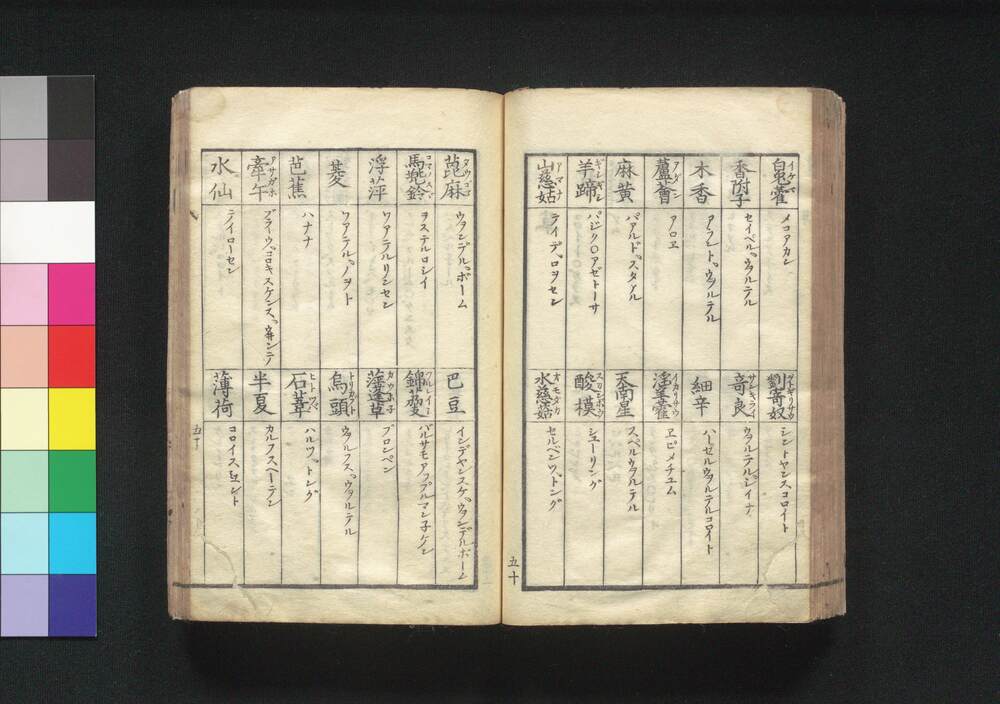 皂藿 イケバ
メコアカン
香附子
セイペル。ウヲルテル
木香
アラント。ウヲルテル
蘆薈 ログワン
アロヱ
麻黄
パアルド。スタアル
羊蹄 ギシギシ
パジク〇アゼトーサ
山慈姑 アマナ
テイデ。ロヲセン
劉寄奴
シントヤンスコロイト
奇良 サンキライ
ウヲルテル。シイナ
細辛
ハーゼルウヲルテルコロイト
淫羊藿 イカリサウ
ヱピメチユム
天南星
スペルウヲルテル
酸模 スカンポウ
シューリング
水慈姑 オモダカ
セルペンツ。トング
五十
蓖麻 タウゴマ
ウヲンデル。ボーム
馬兜鈴
ヲステルロシイ
浮萍
ワアテルリンセン
菱
ワアテル。ノヲト
芭蕉
ハナナ
牽牛 アサガホ
水仙
テイローセン
巴豆
インデヤンスケ。ウヲンデルボーム
パルサモアップルマン子ケン
ブロンペン
烏頭 トリカブト
ウヲルフス。ウヲルテル
石葦 ヒトツバ
ハルツ。トング
半夏
カルフスヘーテン
薄荷
コロイスミュント
五十